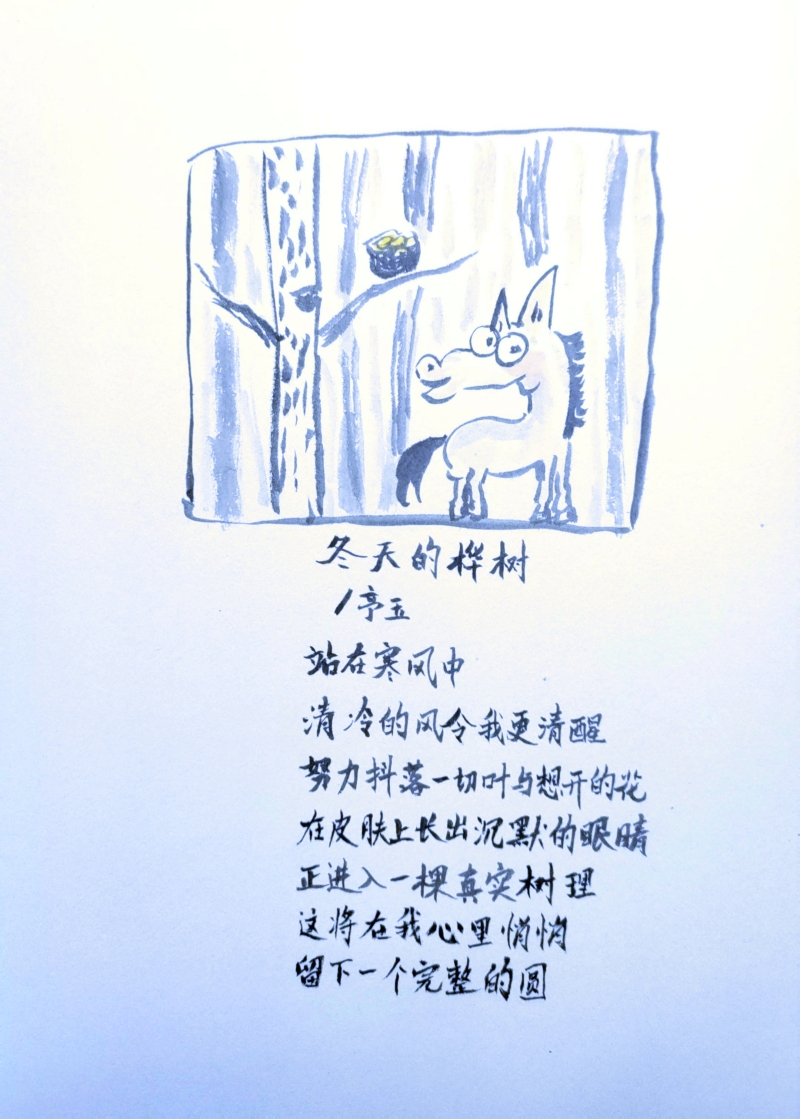 冬天的桦树
/亭玉
站在寒风中
清冷的风令我更清醒
努力抖落一切叶与想开的花
在皮肤上长出沉默的眼睛
正进入一棵真实树理
这将在我心里悄悄
留下一个完整的圆